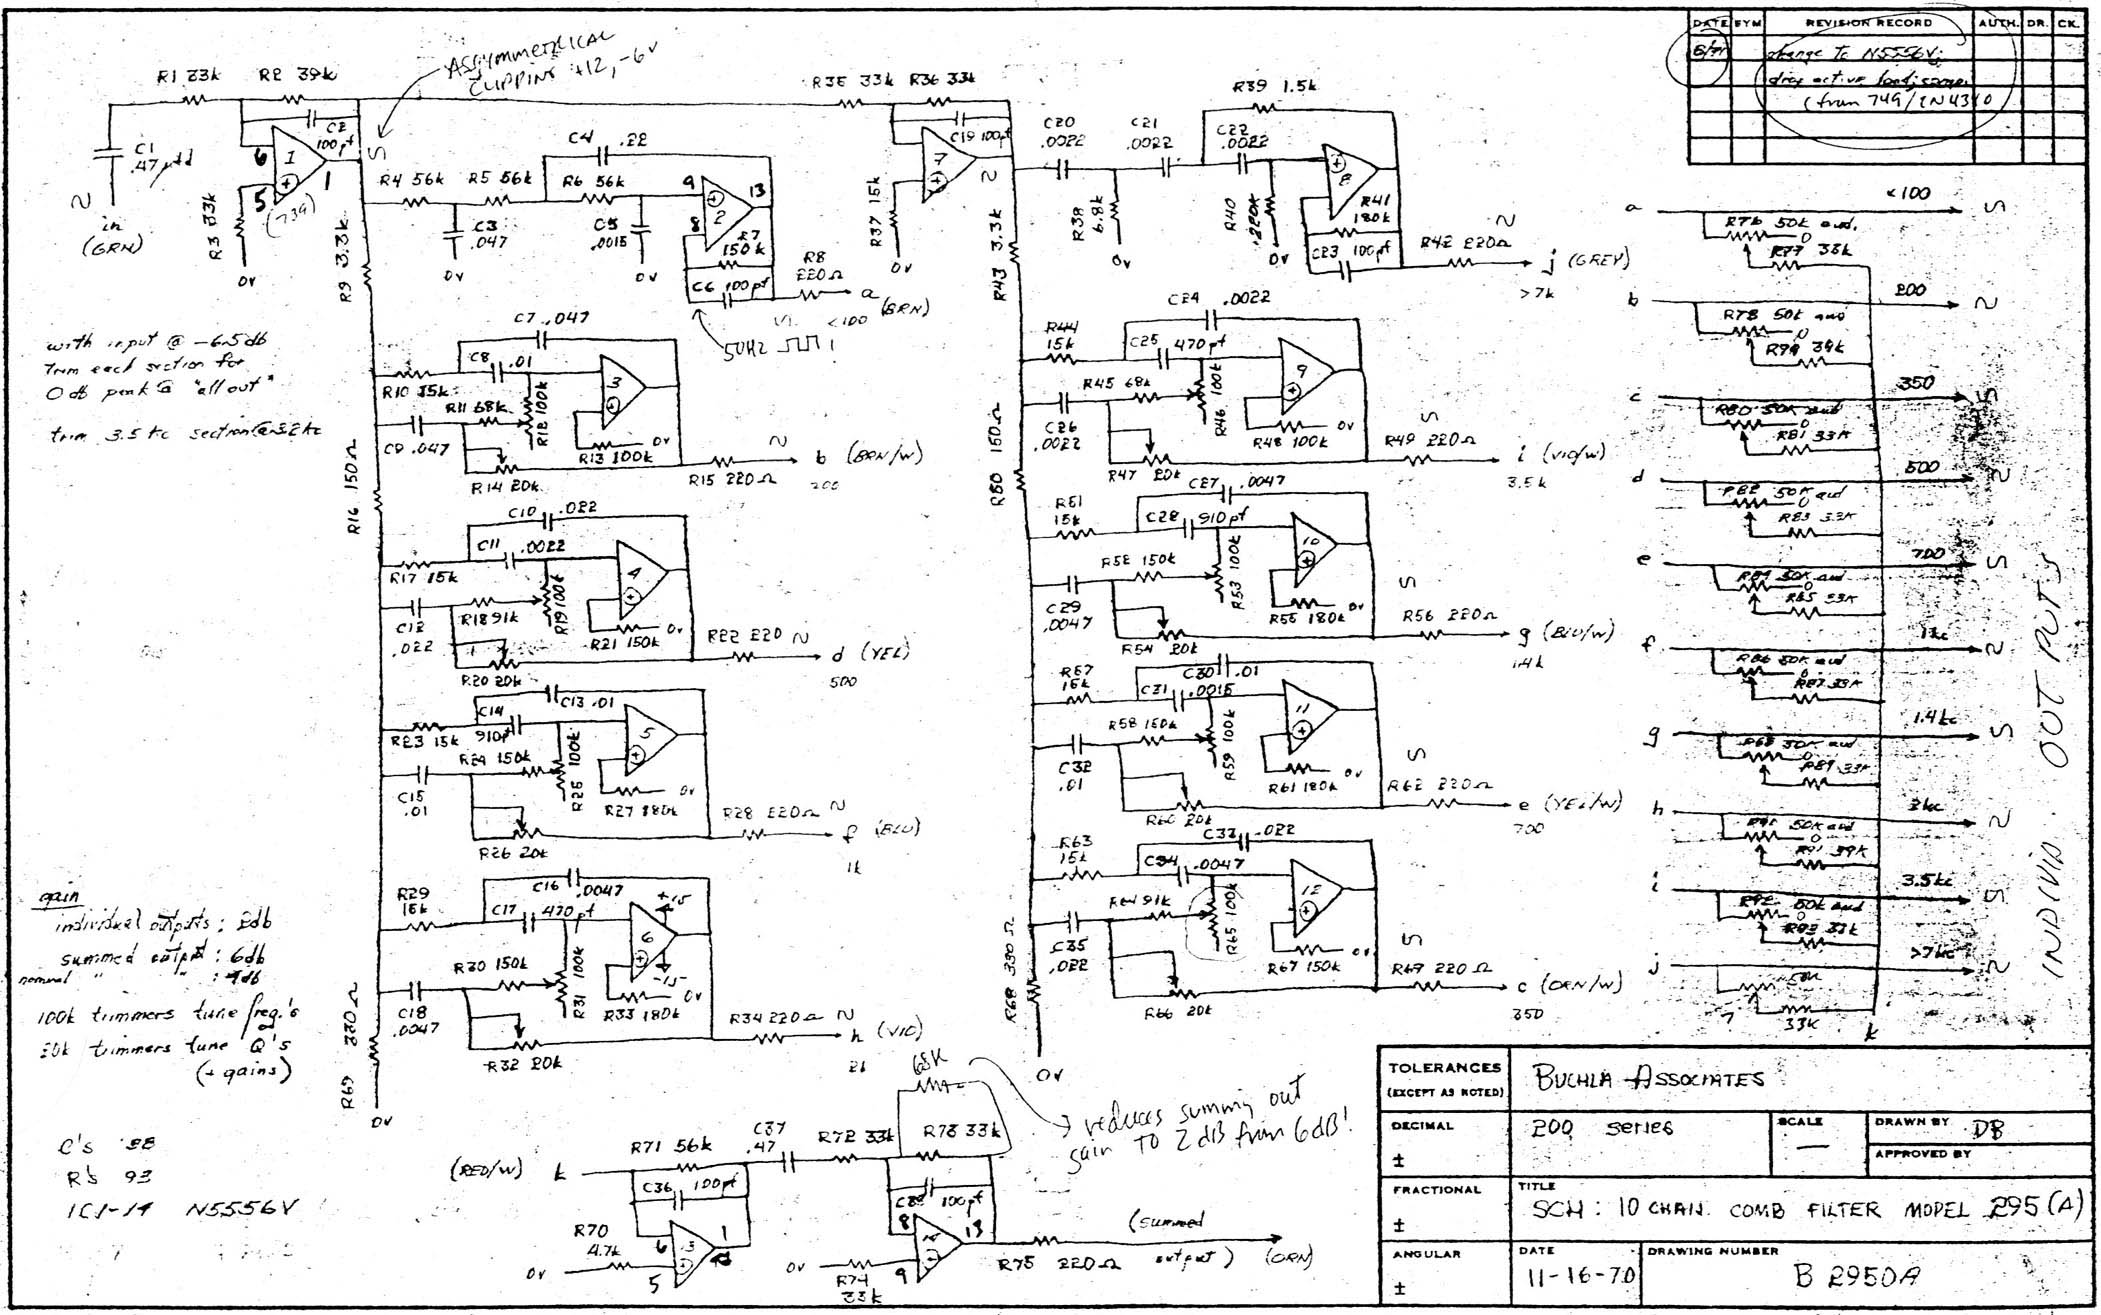 DATE SYM REVISION RECORD AUTH. DR. CK.
change to N5556V;
drop active load; scope.
(from 749/2N4340
ASSYMMETRICAL
CLIPPING +12, -6V
R1 33k R2 39k
C1
.47 μfd
C2
100pf
in
(GRN)
R3 33k
0v
6 1 1
5
(739)
R4 56k R5 56k R6 56k
C4 .22
C3
.047
0v
C5
.0015
0v
9 13
8 2
R7
150k
C6 100pf
R8
220Ω
a
(BRN)
<100
50HZ
R9 3.3k
R35 33k R36 33k
C19 100pf
7
R37 15k
0v
C20
.0022
C21
.0022
C22
.0022
R39 1.5k
R38
6.8k
0v
R40
220k
0v
8
R41
180k
C23 100pf
R42 220Ω
j (GREY)
>7k
R43 3.3k
with input @ -6.5db
Trim each section for
0 db peak @ "all out"
trim 3.5 kc section @ 3.2kc
C7 .047
C8 .01
R10 15k
R11 68k
R12 100k
3
C9 .047
R13 100k
0v
R14 20k
R15 220Ω
b (BRN/W)
200
R16 150Ω
C10 .022
C11 .0022
R17 15k
R18 91k
R19 100k
4
C12
.022
R20 20k
R21 150k
0v
R22 220
d (YEL)
500
C13 .01
C14
910pf
R23 15k
R24 150k
R25 100k
5
C15
.01
R26 20k
R27 180k
0v
R28 220Ω
f (BLU)
1k
R29
15k
C16 .0047
C17 470pf
+15
6
-15
R30 150k
R31 100k
C18
.0047
R32 20k
R33 180k
0v
R34 220Ω
h (VIO)
2k
R69 330Ω
0v
C24 .0022
R44
15k
C25 470pf
R45 68k
R46 100k
9
C26
.0022
R47 20k
R48 100k
0v
R49 220Ω
i (VIO/W)
3.5k
R50 150Ω
C27 .0047
R51
15k
C28 910pf
R52 150k
R53 100k
10
C29
.0047
R54 20k
R55 180k
0v
R56 220Ω
g (BLU/W)
1.4k
R57
15k
C30 .01
C31 .0015
R58 150k
R59 100k
11
C32
.01
R60 20k
R61 180k
0v
R62 220Ω
e (YEL/W)
700
R63
15k
C33 .022
C34 .0047
R64 91k
R65 100k
12
C35
.022
R66 20k
R67 150k
0v
R69 220Ω
c (ORN/W)
350
R68 330Ω
0v
gain
individual outputs: 2db
summed output: 6db
nominal " "
100k trimmers tune freq.'s
20k trimmers tune Q's
(+ gains)
C's 38
R's 93
IC1-14 N5556V
(RED/W) k
R71 56k
C36 100pf
R70
4.7k
0v
6 1
5
C37
.47
R72 33k
68K
R73 33k
100pf
8 13
9
0v
R74
33k
R75 220Ω
(summed
output) (ORN)
reduces summing out
gain TO 2dB from 6dB!
a <100
R76 50k aud.
R77 33k
b 200
R78 50k aud
c 350
R80 50k aud
R81 33k
d 500
R82 50k aud
R83 33k
e 700
R84 50k aud
R85 33k
f 1kc
R86 50k aud
R87 33k
g 1.4kc
R88 50k aud
R89 33k
h 2kc
50k aud
i 3.5kc
R92 50k aud
R93 33k
j >7kc
50k
33K
k
INDIVID. OUTPUTS
TOLERANCES
(EXCEPT AS NOTED)
BUCHLA ASSOCIATES
DECIMAL
±
200 series
SCALE
—
DRAWN BY DB
APPROVED BY
FRACTIONAL
±
TITLE
SCH: 10 CHAN. COMB FILTER MODEL 295(A)
ANGULAR
±
DATE
11-16-70
DRAWING NUMBER
B 2950A